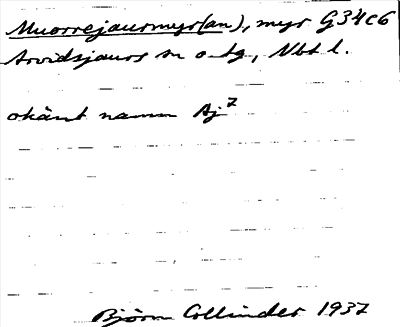 Muorrejaurmyr(an), myr G34c6
Arvidsjaurs sn o tg, Nbt l.
okänt namn Aj⁷
Björn Collinder 1937